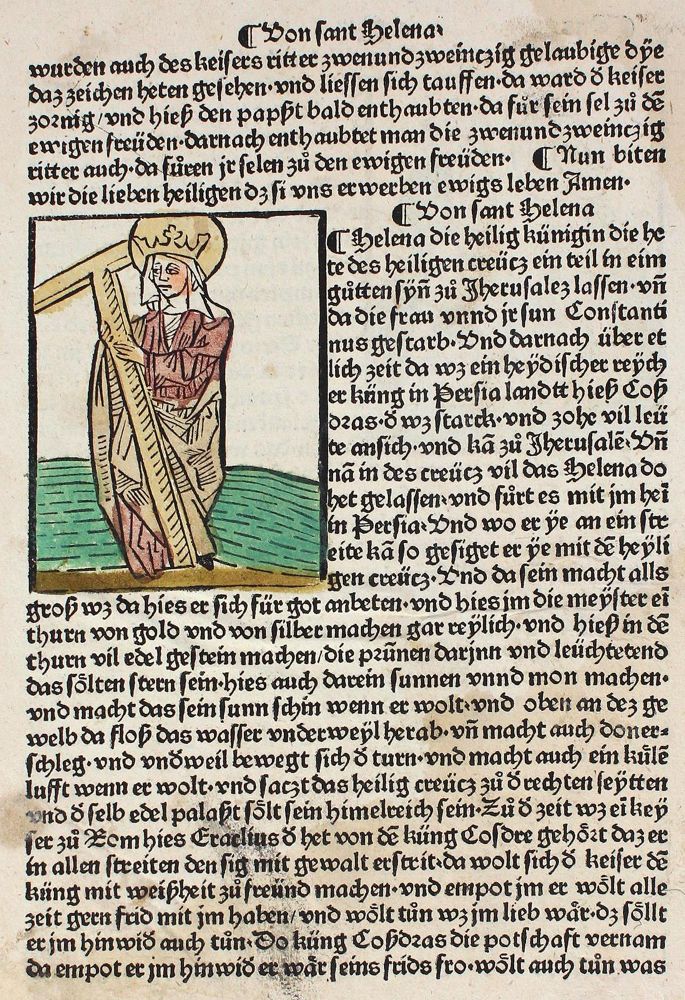 ¶ Von sant Helena·
wurden auch des keisers ritter zwenundzweinczig gelaubige dÿe
daz zeichen heten gesehen·vnd liessen sich tauffen·da ward đ keiser
zornig/vnd hieß den papßt bald enthaubten·da fůr sein sel zů dē
ewigen freüden·darnach enthaubtet man die zwenundzweinczig
ritter auch·da fůren jr selen zů den ewigen freüden· ¶ Nun biten
wir die lieben heiligen dz si vns erwerben ewigs leben Amen·
¶ Von sant Helena
¶ Helena die heilig künigin die he
te des heiligen creücz ein teil in eim
gůtten sÿn̄ zů Jherusalez lassen·vn̄
da die frau vnnd jr sun Constanti
nus gestarb·Vnd darnach über et
lich zeit da wz ein heÿdischer reÿch
er küng in Persia landtt hieß Coß
dras·đ wz starck·vnd zohe vil leü
te ansich·vnd kā zů Jherusalē·Vn̄
nā in des creücz vil das Helena do
het gelassen·vnd fůrt es mit jm heī
in Persia·Vnd wo er ÿe an ein str
eite kā so gesiget er ÿe mit dē heÿli
gen creücz·Vnd da sein macht alls
groß wz da hies er sich für got anbeten·vnd hies jm die meÿster eī
thurn von gold vnd von silber machen gar reÿlich·vnd hieß in dē
thurn vil edel gestein machen/die prünen darjnn vnd leüchtetend
das sölten stern sein·hies auch darein sunnen vnnd mon machen·
vnd macht das sein sunn schin wenn er wolt·vnd oben an dez ge
welb da floß das wasser vnderweÿl herab·vn̄ macht auch doner=
schleg·vnd vnđweil bewegt sich đ turn·vnd macht auch ein külē
lufft wenn er wolt·vnd saczt das heilig creücz zů đ rechten seÿtten
vnd đ selb edel palaßt sölt sein himelreich sein·Zů đ zeit wz eī keÿ
ser zů Rom hies Eraclius đ het von dē küng Cosdre gehört daz er
in allen streiten den sig mit gewalt erstreit·da wolt sich đ keiser dē
küng mit weißheit zů freünd machen·vnd empot jm er wölt alle
zeit gern frid mit jm haben/vnd wölt tůn wz jm lieb wär·dz söllt
er jm hinwiđ auch tůn·Do küng Coßdras die potschaft vernam
da empot er jm hinwiđ er wär seins frids fro·wölt auch tůn was